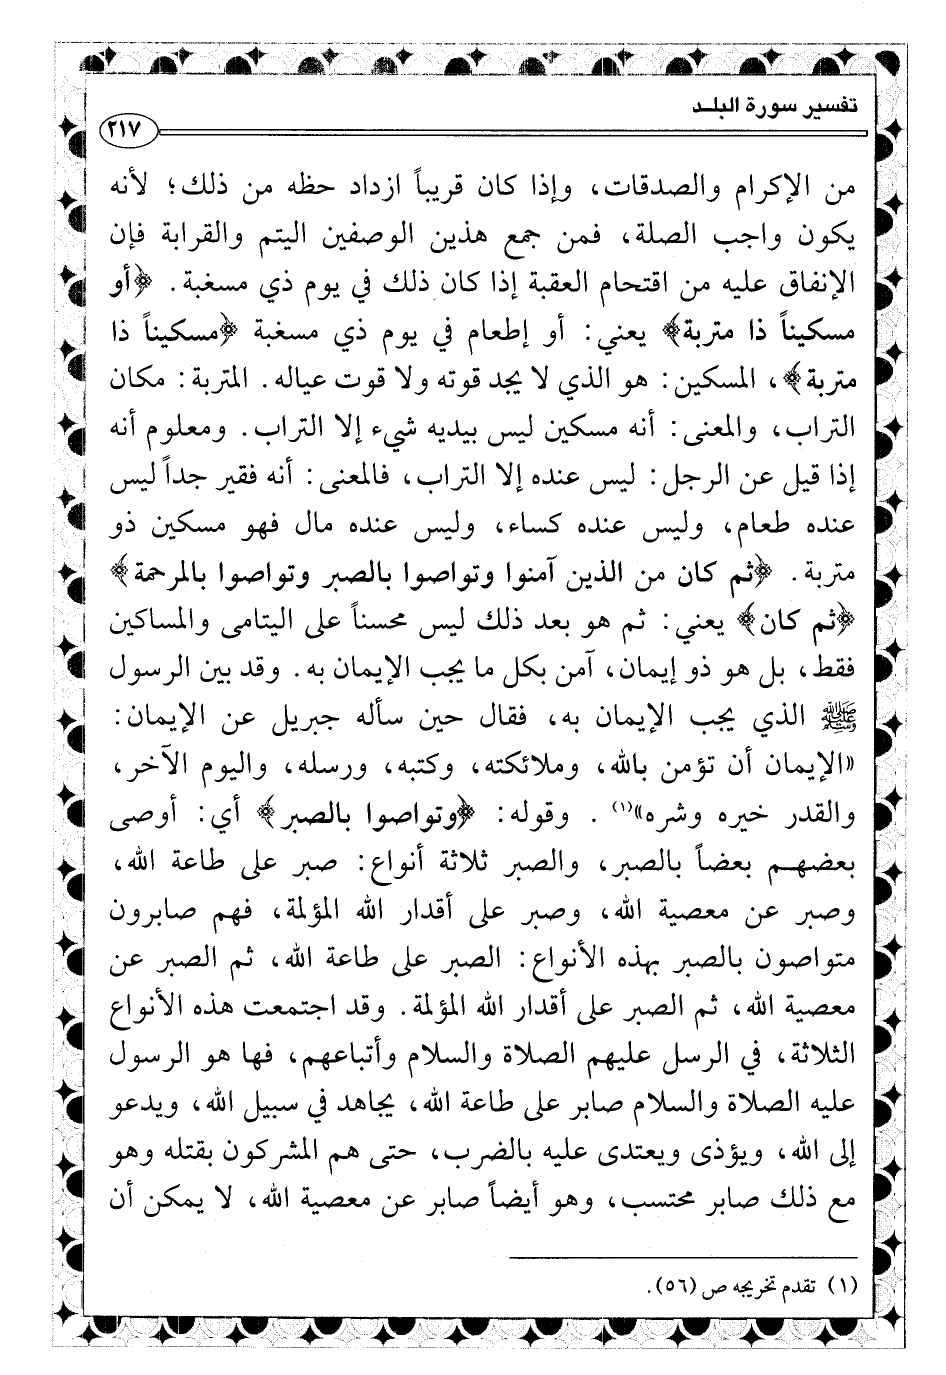 تفسير سورة البلـد
٢١٧
من الإكرام والصدقات، وإذا كان قريباً ازداد حظه من ذلك؛ لأنه
يكون واجب الصلة، فمن جمع هذين الوصفين اليتم والقرابة فإن
الإنفاق عليه من اقتحام العقبة إذا كان ذلك في يوم ذي مسغبة. ﴿أو
مسكيناً ذا متربة﴾ يعني: أو إطعام في يوم ذي مسغبة ﴿مسكيناً ذا
متربة﴾، المسكين: هو الذي لا يجد قوته ولا قوت عياله. المتربة: مكان
التراب، والمعنى: أنه مسكين ليس بيديه شيء إلا التراب. ومعلوم أنه
إذا قيل عن الرجل: ليس عنده إلا التراب، فالمعنى: أنه فقير جداً ليس
عنده طعام، وليس عنده كساء، وليس عنده مال فهو مسكين ذو
متربة. ﴿ثم كان من الذين آمنوا وتواصوا بالصبر وتواصوا بالمرحمة﴾
﴿ثم كان﴾ يعني: ثم هو بعد ذلك ليس محسناً على اليتامى والمساكين
فقط، بل هو ذو إيمان، آمن بكل ما يجب الإيمان به. وقد بين الرسول
ﷺ الذي يجب الإيمان به، فقال حين سأله جبريل عن الإيمان:
«الإيمان أن تؤمن بالله، وملائكته، وكتبه، ورسله، واليوم الآخر،
والقدر خيره وشره»(١) . وقوله: ﴿وتواصوا بالصبر﴾ أي: أوصى
بعضهـم بعضاً بالصبر، والصبر ثلاثة أنواع: صبر على طاعة الله،
وصبر عن معصية الله، وصبر على أقدار الله المؤلمة، فهم صابرون
متواصون بالصبر بهذه الأنواع: الصبر على طاعة الله، ثم الصبر عن
معصية الله، ثم الصبر على أقدار الله المؤلمة. وقد اجتمعت هذه الأنواع
الثلاثة، في الرسل عليهم الصلاة والسلام وأتباعهم، فها هو الرسول
عليه الصلاة والسلام صابر على طاعة الله، يجاهد في سبيل الله، ويدعو
إلى الله، ويؤذى ويعتدى عليه بالضرب، حتى هم المشركون بقتله وهو
مع ذلك صابر محتسب، وهو أيضاً صابر عن معصية الله، لا يمكن أن
(١) تقدم تخريجه ص (٥٦).